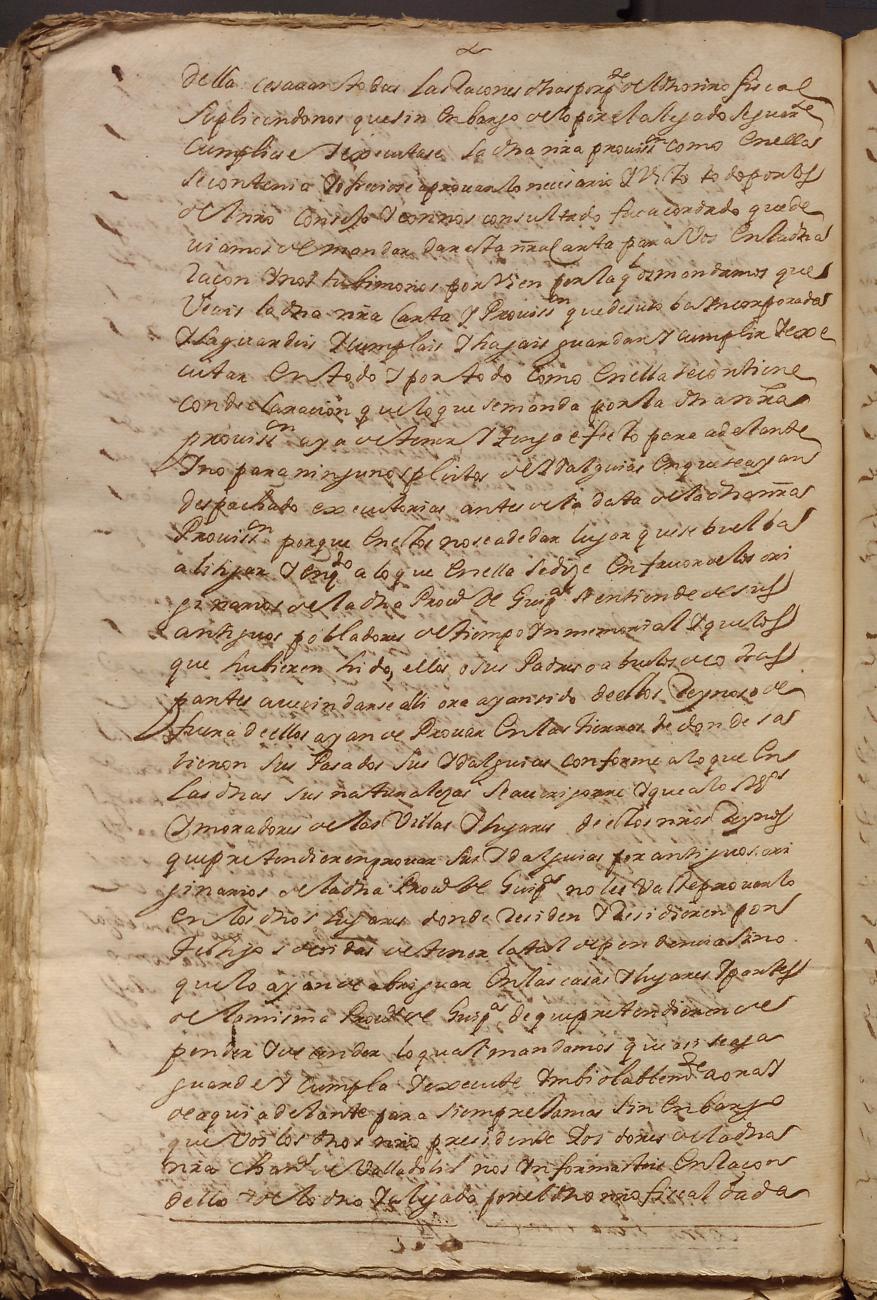 della cesauan todas las Raçones dhas por pte del dho nro fiscal
suplicandonos que sin enbargo de lo por el alegado se guar
cumpliese y executase la dha nra provisin como en ella
se contenia y si fuese aprouarlo necesario y Visto todo por los
del nro consejo y con nos consultado fue acordado que de
uiamos de mandar dar esta nra Carta para Vos en la dha
Raçon y nos tubimoslo por vien por la ql os mandamos que
Veais la dha nra Carta y Provision que de suso ba yncorporada
y la guardeis y cumplais y hagais guardar y cumplir y exe
cutar en todo y por todo como en ella se contiene
con declaracion que lo que se manda por la dha nra
provisin aya de tener y tenga efecto para adelante
y no para ningunos pleitos de ydalguias en que se ayan
despachado executorias antes de la data de la dha nra
Provisin porque en ellos no se a de dar lugar que se buelba
a litigar y en qto a lo que en ella se dize en fauor de los ori
ginarios de la dha Prova de Guipca se entiende de sus
antiguos pobladores de tiempo ynmemorial y que los
que hubieren hido, ellos o sus Padres o abuelos de otras
partes a uecindarse ali ora ayan sido destos Reynos o de
fuera de ellos ayan de Prouar en las tierras de donde sa
lieron sus Pasados sus ydalguias conforme a lo que en
las dhas sus naturalezas se aueriguare y que a los Vos
y moradores de las Villas y lugares de estos nros Reynos
que pretendieren prouar sus ydalguias por antiguos ori
ginarios de la dha Prova de Guipca no les Valga prouarlo
en los dhos lugares donde Residen y Residieren por
testigos de oidas de tener la tal dependencia sino
que lo ayan de abriguar en las casas y lugares y partes
de la misma Prova de Guipca de que pretendieren de
pender y decender lo qual mandamos que asi se aga
guarde y cumpla y execute ynbiolablemte aora y
de aqui adelante para siempre Jamas sin enbargo
que Vos los dhos nro presidente y oydores de la dha
nra Chanca de Valladolid nos ynformastes en Raçon
dello y de lo dho y alegado por el dho nro fiscal dada